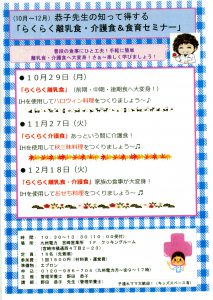 (10月～12月) 恭子先生の知って得する
「らくらく離乳食・介護食&食育セミナー」
普段の食事にひと工夫！手軽に簡単
離乳食・介護食へ大変身！さぁ～楽しく学びましょう！
●10月29日(月)
「らくらく離乳食」(前期・中期・後期食へ大変身！)
IHを使用してハロウィン料理をつくりましょう～♪
●11月27日(火)
「らくらく介護食」あっという間に介護食！
IHを使用して秋三昧料理をつくりましょう～
●12月18日(火)
「らくらく離乳食・介護食」家族の食事が大変身！
IHを使用しておせち料理をつくりましょう～
時間：10:30～13:30(10:00受付)
場所：九州電力 宮崎営業所 1F クッキングルーム
定員：15名(先着順)
参加費：1回1500円(材料費・運営費)
準備物：エプロン
申込：0120-986-704
講師：野田 恭子（管理栄養士）
子連れママ大歓迎！(キッズスペース有)